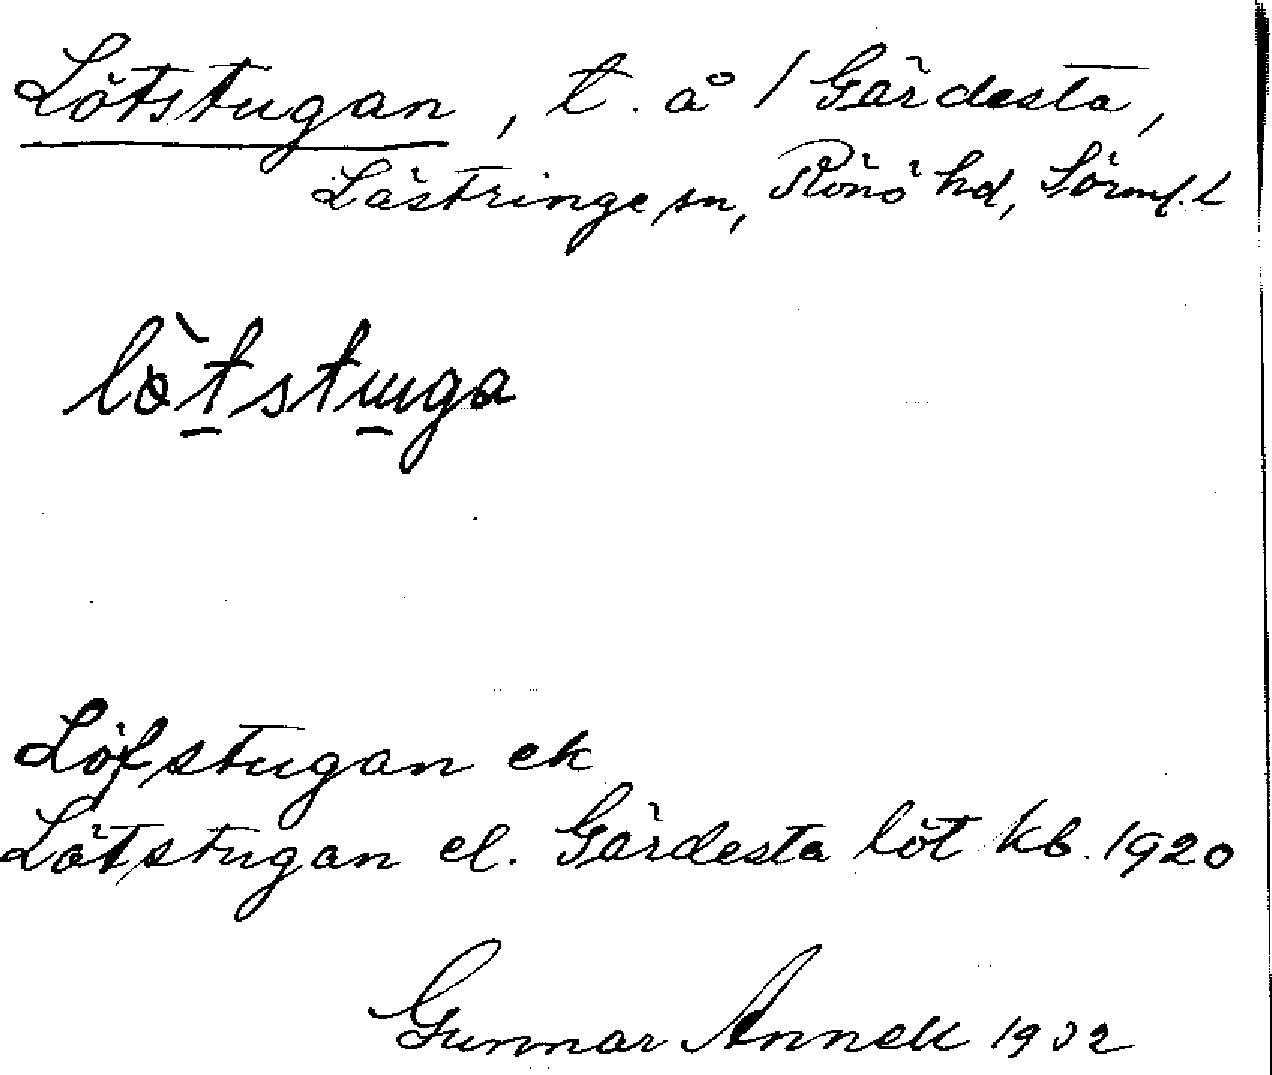 Lötstugan, t. å / Gärdesta,
Lästringe sn, Rönö hd, Sörml. l
lö̀tstuga
Löfstugan ek
Lötstugan el. Gärdesta löt kb. 1920
Gunnar Annell 1932